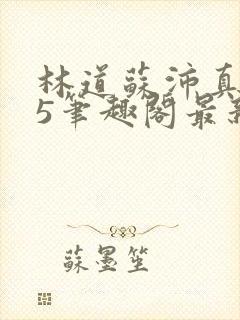 林道蘇沛真
5笔趣阁最新
蘇墨笙